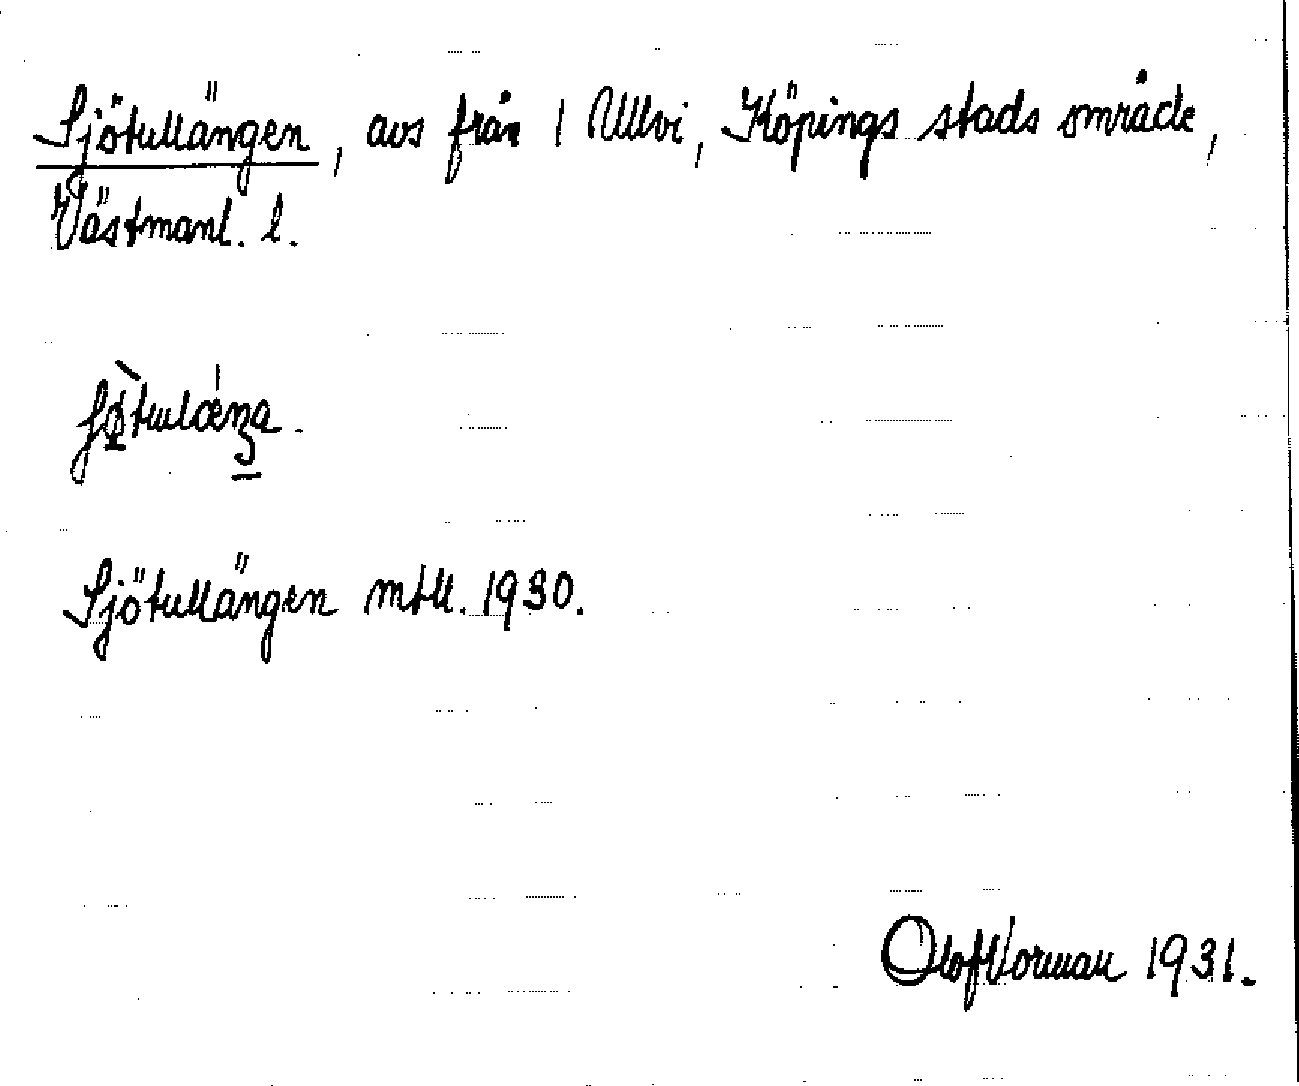 Sjötullängen, avs från 1 Ullvi, Köpings stads område,
Västmanl. l.
Sjötullängen mtll. 1930.
Olof Vorman 1931.